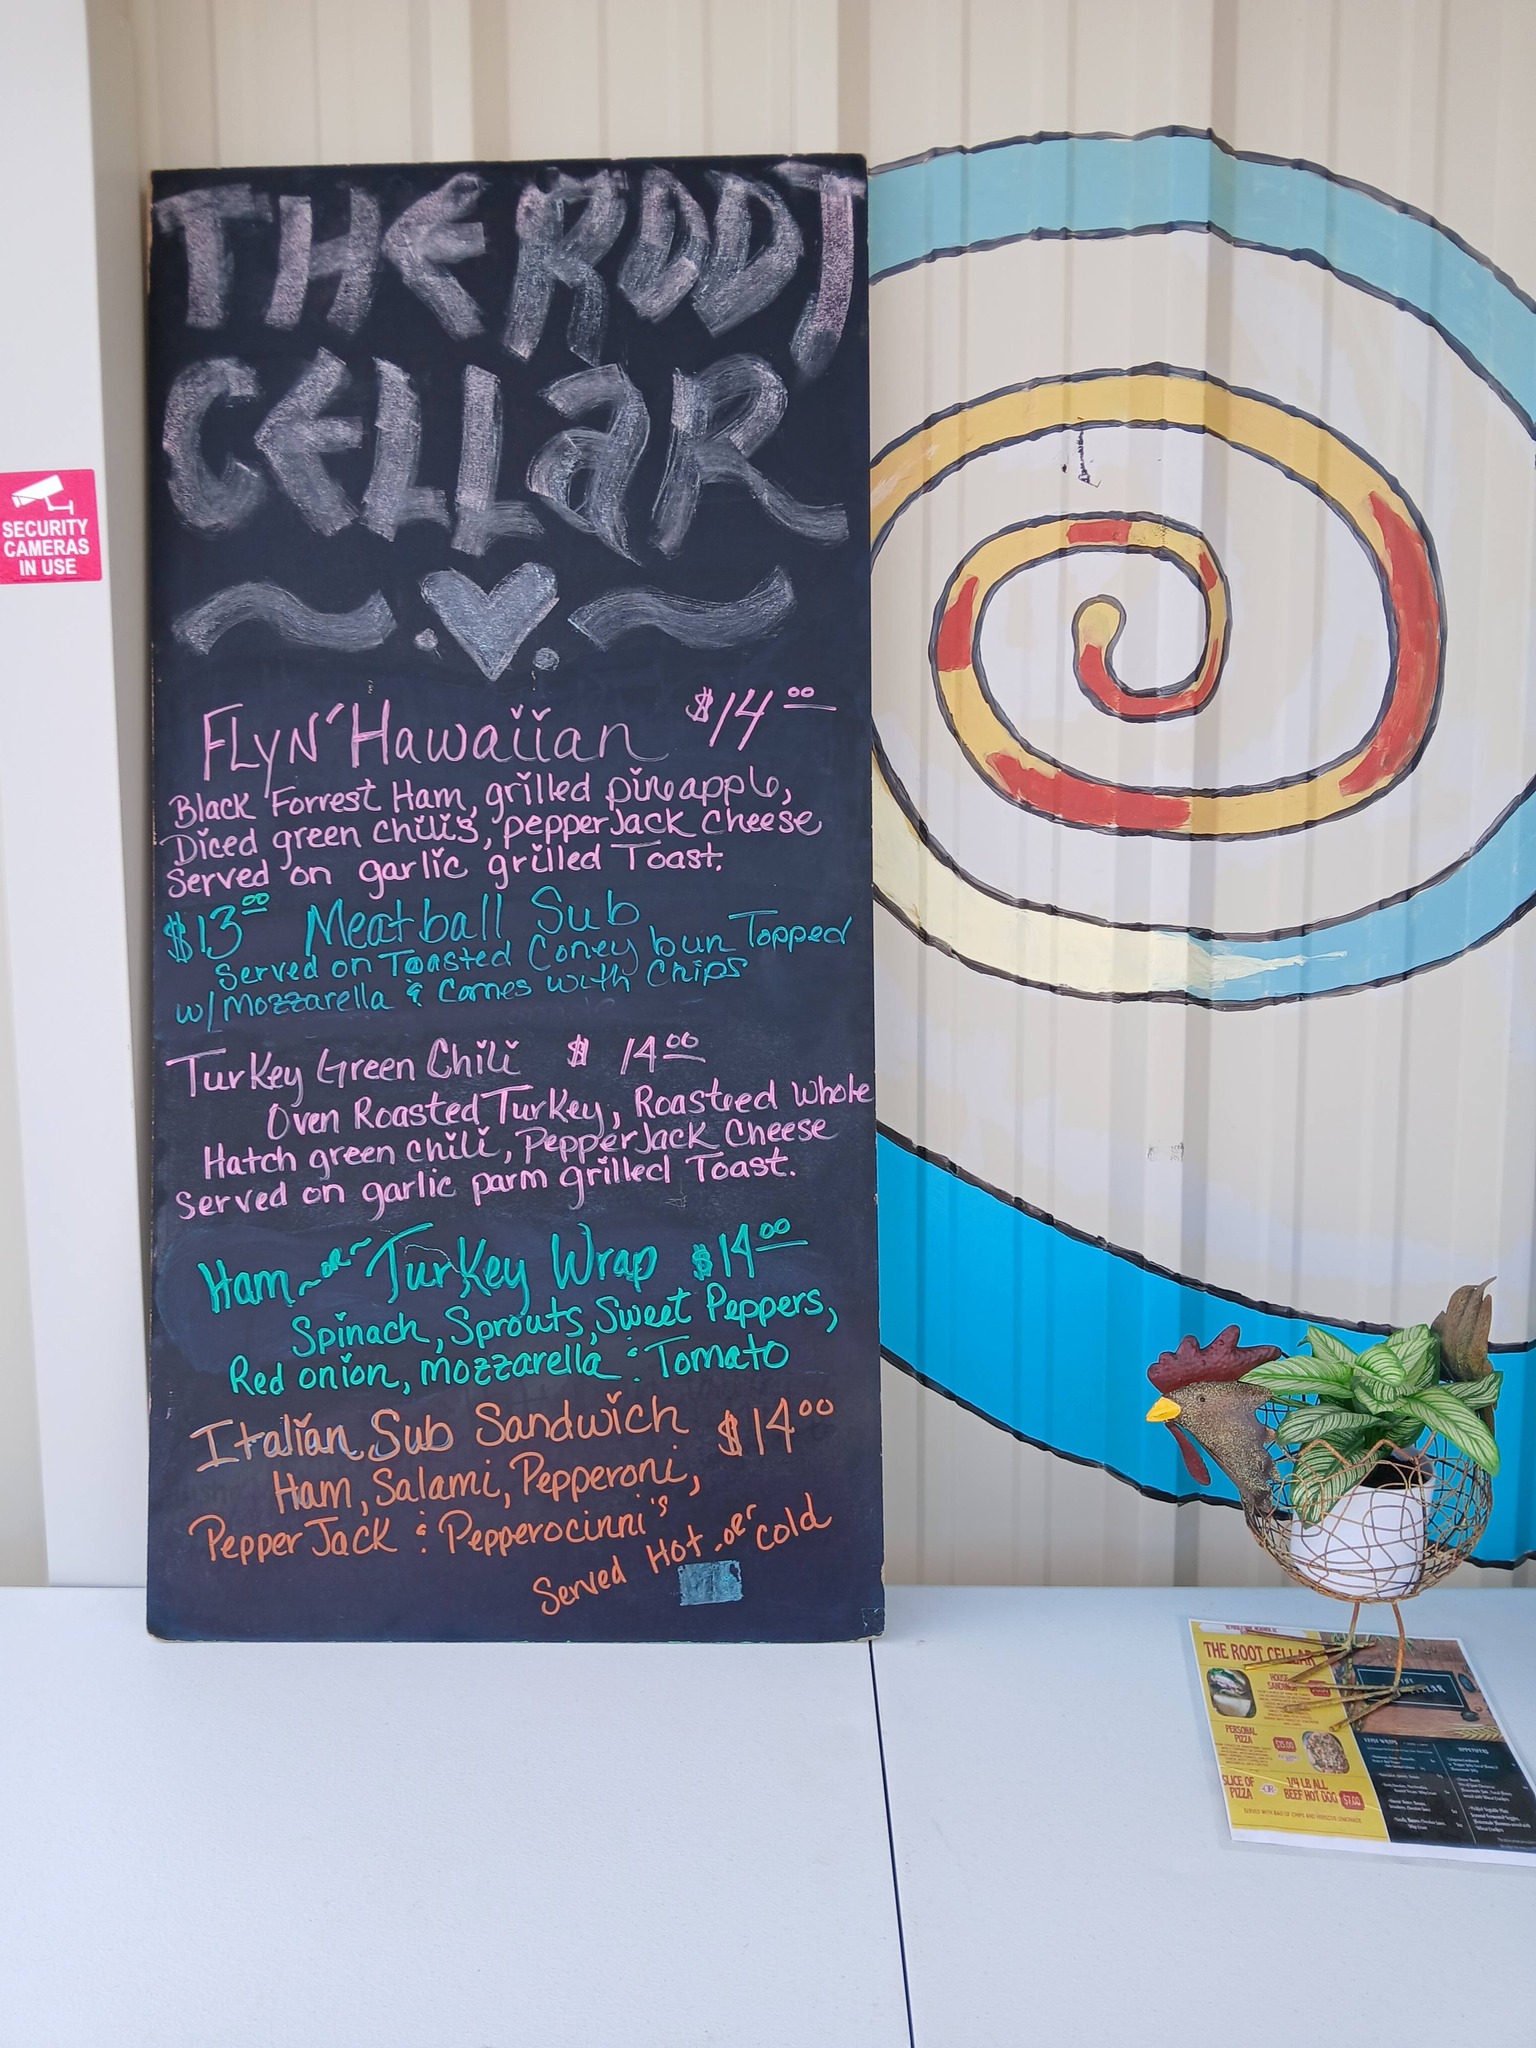 THE ROOT
CELLAR
FLyN' Hawaiian $14.00
Black Forrest Ham, grilled pineapple,
Diced green chili's, pepperJack cheese
Served on garlic grilled Toast.
$13.00 Meatball Sub
Served on Toasted Coney bun Topped
w/Mozzarella & Comes with Chips
Turkey Green Chili $ 14.00
Oven Roasted Turkey, Roasteed Whole
Hatch green chili, PepperJack Cheese
Served on garlic parm grilled Toast.
Ham ~or~ Turkey Wrap $14.00
Spinach, Sprouts, Sweet Peppers,
Red onion, mozzarella & Tomato
Italian Sub Sandwich $14.00
Ham, Salami, Pepperoni,
Pepper Jack & Pepperocinni's
Served Hot -or cold
SECURITY
CAMERAS
IN USE
THE ROOT CELLAR
HOUSE
PERSONAL
PIZZA
$15.00
SLICE OF
PIZZA
OR
1/4 LB ALL
BEEF HOT DOG
$7.00
SERVED WITH BAG OF CHIPS AND HIBISCUS LEMONADE